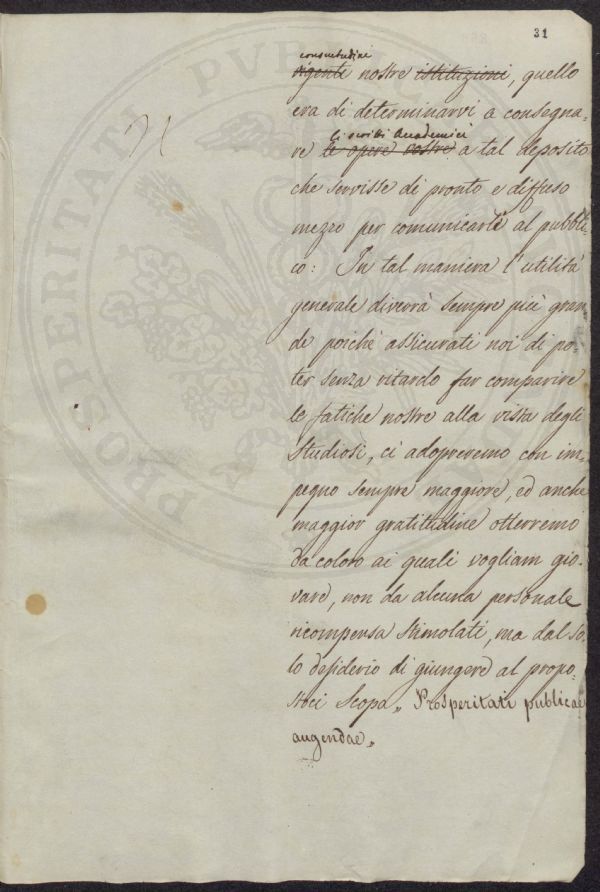 31
consuetudini
vigenti nostre istituzioni, quello
era di determinarvi a consegna-
gli scritti Accademici
re le opere vostre a tal deposito
che servisse di pronto e diffuso
mezzo per comunicarle al pubbli-
co: In tal maniera l'utilità
generale diverrà sempre più gran
de poichè assicurati noi di po-
ter senza ritardo far comparire
le fatiche nostre alla vista degli
studiosi, ci adopreremo con im-
pegno sempre maggiore, ed anche
maggior gratitudine otterremo
da coloro ai quali vogliam gio-
vare, non da alcuna personale
ricompensa stimolati, ma dal so-
lo desiderio di giungere al propo-
stoci Scopo„ Prosperitati publicae
augendae„
PROSPERITATI PUBLICAE